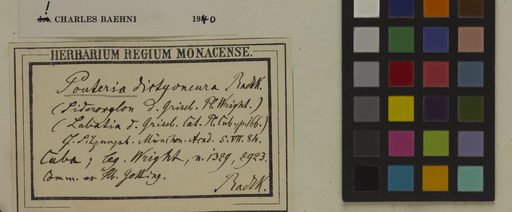 !
det. CHARLES BAEHNI 1940
HERBARIUM REGIUM MONACENSE.
Pouteria dictyoneura Radlk.
(Sideroxylon d. Griseb. Pl. Wright.)
(Labatia d. Griseb. Cat. Pl. Cub. p. 166.)
cf. Sitzungsb. München. Acad. 5. VII. 84.
Cuba; leg. Wright, n. 1329, 2923.
Comm. ex Hb. Götting.
Radlk.